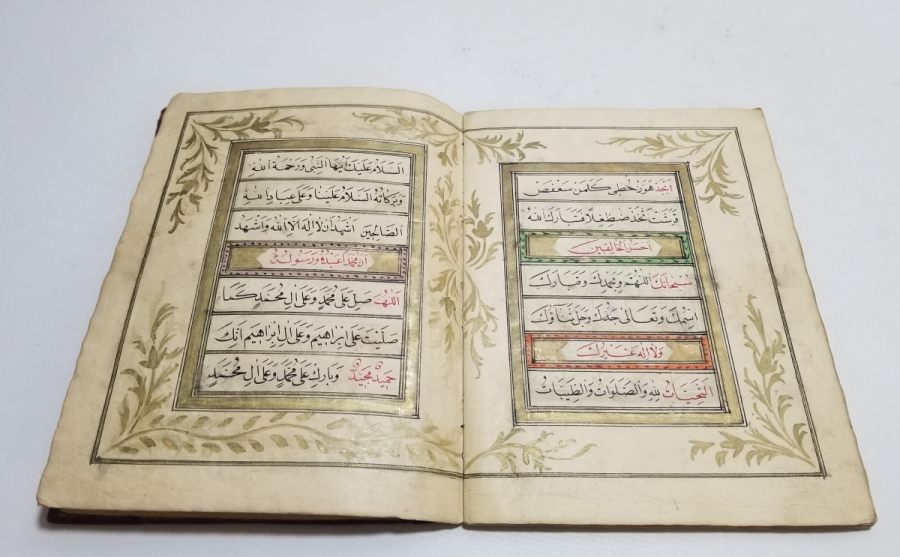 ابجد هوز حطى كلمن سعفص
قرشت ثخذ ضظغلا فتبارك الله
احسن الخالقين
سبحانك اللهم وبحمدك وتبارك
اسمك وتعالى جدك وجل ثناؤك
ولا اله غيرك
التحيات لله والصلوات والطيبات
السلام عليك ايها النبى ورحمة الله
وبركاته السلام علينا وعلى عباد الله
الصالحين اشهد ان لا اله الا الله واشهد
ان محمدا عبده ورسوله
اللهم صل على محمد وعلى ال محمد كما
صليت على ابراهيم وعلى ال ابراهيم انك
حميد مجيد وبارك على محمد وعلى ال محمد